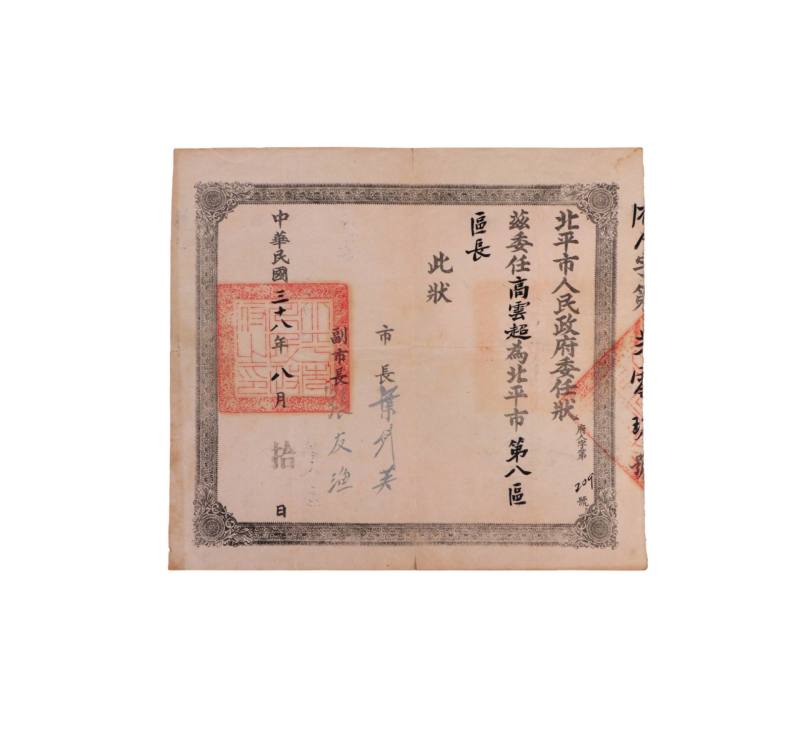 北平市人民政府委任狀
府人字第209號
茲委任高雲超為北平市第八區
區長
此狀
市長葉剑英
副市長張友漁
中華民國三十八年八月拾日